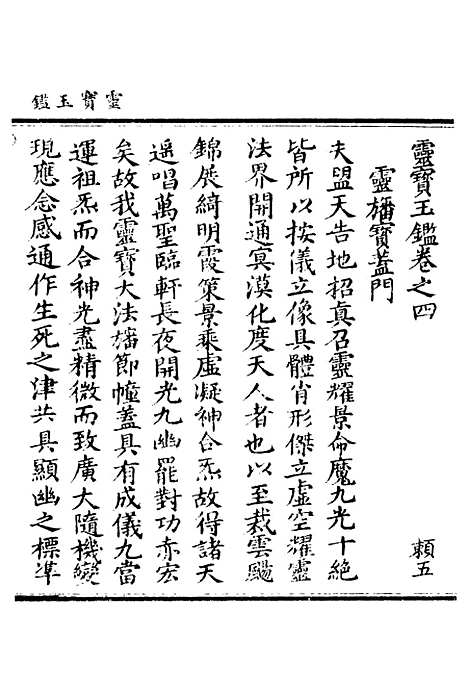 靈寶玉鑑
靈寶玉鑑卷之四 頼五
靈旛寶蓋門
夫盟天告地招真召靈耀景命魔九光十絶
皆所以按儀立像具體肖形傑立虛空耀靈
法界開通冥漠化度天人者也以至裁雲颺
錦展綺明霞策景乘虛凝神合炁故得諸天
遥唱萬聖臨軒長夜開光九幽罷對功亦宏
矣故我靈寶大法旛節幢蓋具有成儀九當
運祖炁而合神光盡精微而致廣大隨機變
現應念感通作生死之津共具顯幽之標準